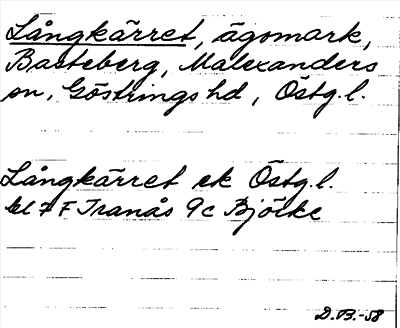 Långkärret, ägomark,
Basteberg, Malexanders
sn, Göstrings hd, Östg.l.
Långkärret ek Östg.l.
bl 7 F Tranås 9c Björke
D.B.-58